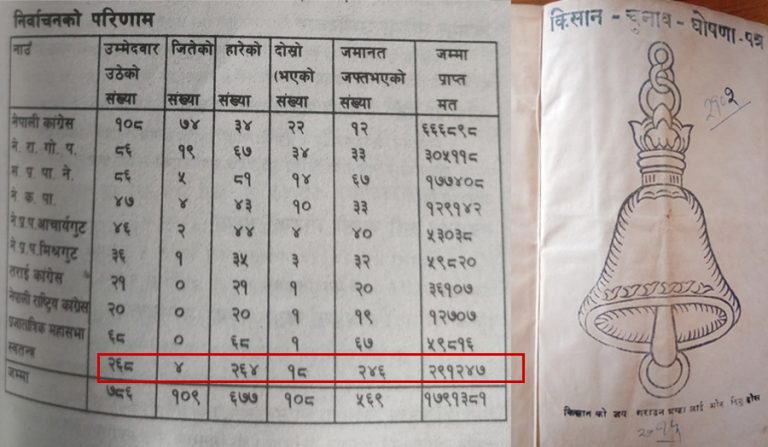 निर्वाचनको परिणाम
नाउँ उम्मेदवार उठेको संख्या जितेको संख्या हारेको संख्या दोस्रो (भएको संख्या जमानत जफ्तभएको संख्या जम्मा प्राप्त मत
नेपाली कांग्रेस १०८ ७४ ३४ २२ १२ ६६६८९८
ने. रा. गो. प. ८६ १९ ६७ ३४ ३३ ३०५११८
सं. प्र. पा. ने. ८६ ५ ८१ १४ ६७ १७७४०८
ने. क. पा. ४७ ४ ४३ १० ३३ १२९१४२
ने.प्र.प.आचार्यगुट ४६ २ ४४ ४ ४० ५३०३८
ने.प्र.प.मिश्रगुट ३६ १ ३५ ३ ३२ ५९८२०
तराई कांग्रेस २१ ० २१ १ २० ३६१०७
नेपाली राष्ट्रिय कांग्रेस २० ० २० १ १९ १२७०७
प्रजातान्त्रिक महासभा ६८ ० ६८ १ ६७ ५९८९६
स्वतन्त्र २६८ ४ २६४ १८ २४६ २९१२४७
जम्मा ७८६ १०९ ६७७ १०८ ५६९ १७९१३८१
किसान - चुनाव - घोषणा - पत्र
किसान को जय